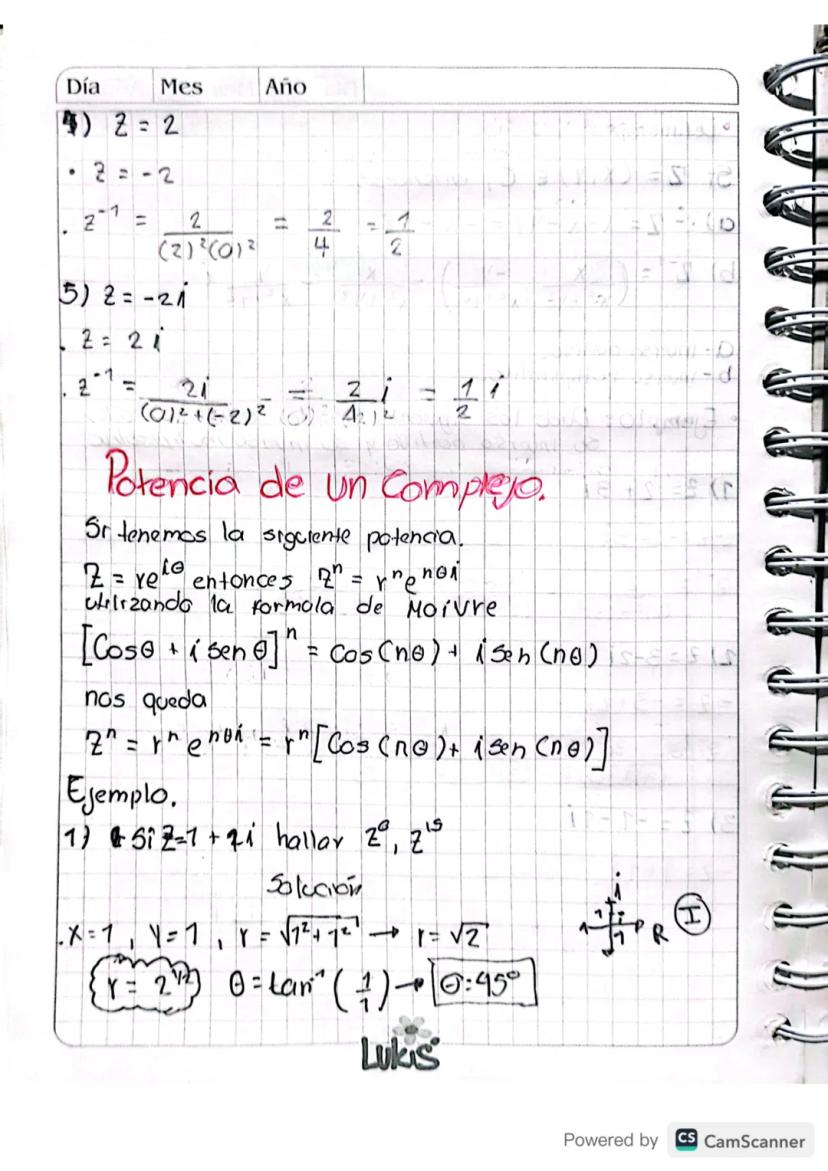 Día Mes Año
4) Z = 2
• Z = -2
. z⁻¹ = 2/((2)²(0)²) = 2/4 = 1/2
5) Z = -2i
. Z = 2i
. z⁻¹ = 2i/((0)²+(-2)²) = 2/4 i = 1/2 i
Potencia de un complejo.
Si tenemos la siguiente potencia.
Z = re^iθ entonces Zⁿ = rⁿe^nθi
utilizando la formula de Moivre
[Cosθ + i senθ]ⁿ = Cos(nθ) + i Sen(nθ)
nos queda
Zⁿ = rⁿ e^nθi = rⁿ[Cos(nθ) + i sen(nθ)]
Ejemplo.
1) Si Z=1 + 1i hallar Z⁰, Z¹⁵
Solución
i
1 i
.X=1, Y=1, r = √(1²+1²) → r = √2 1 R I
r = 2^1/2 θ = tan⁻¹(1/1) → θ:45°
Lukis
Powered by CS CamScanner